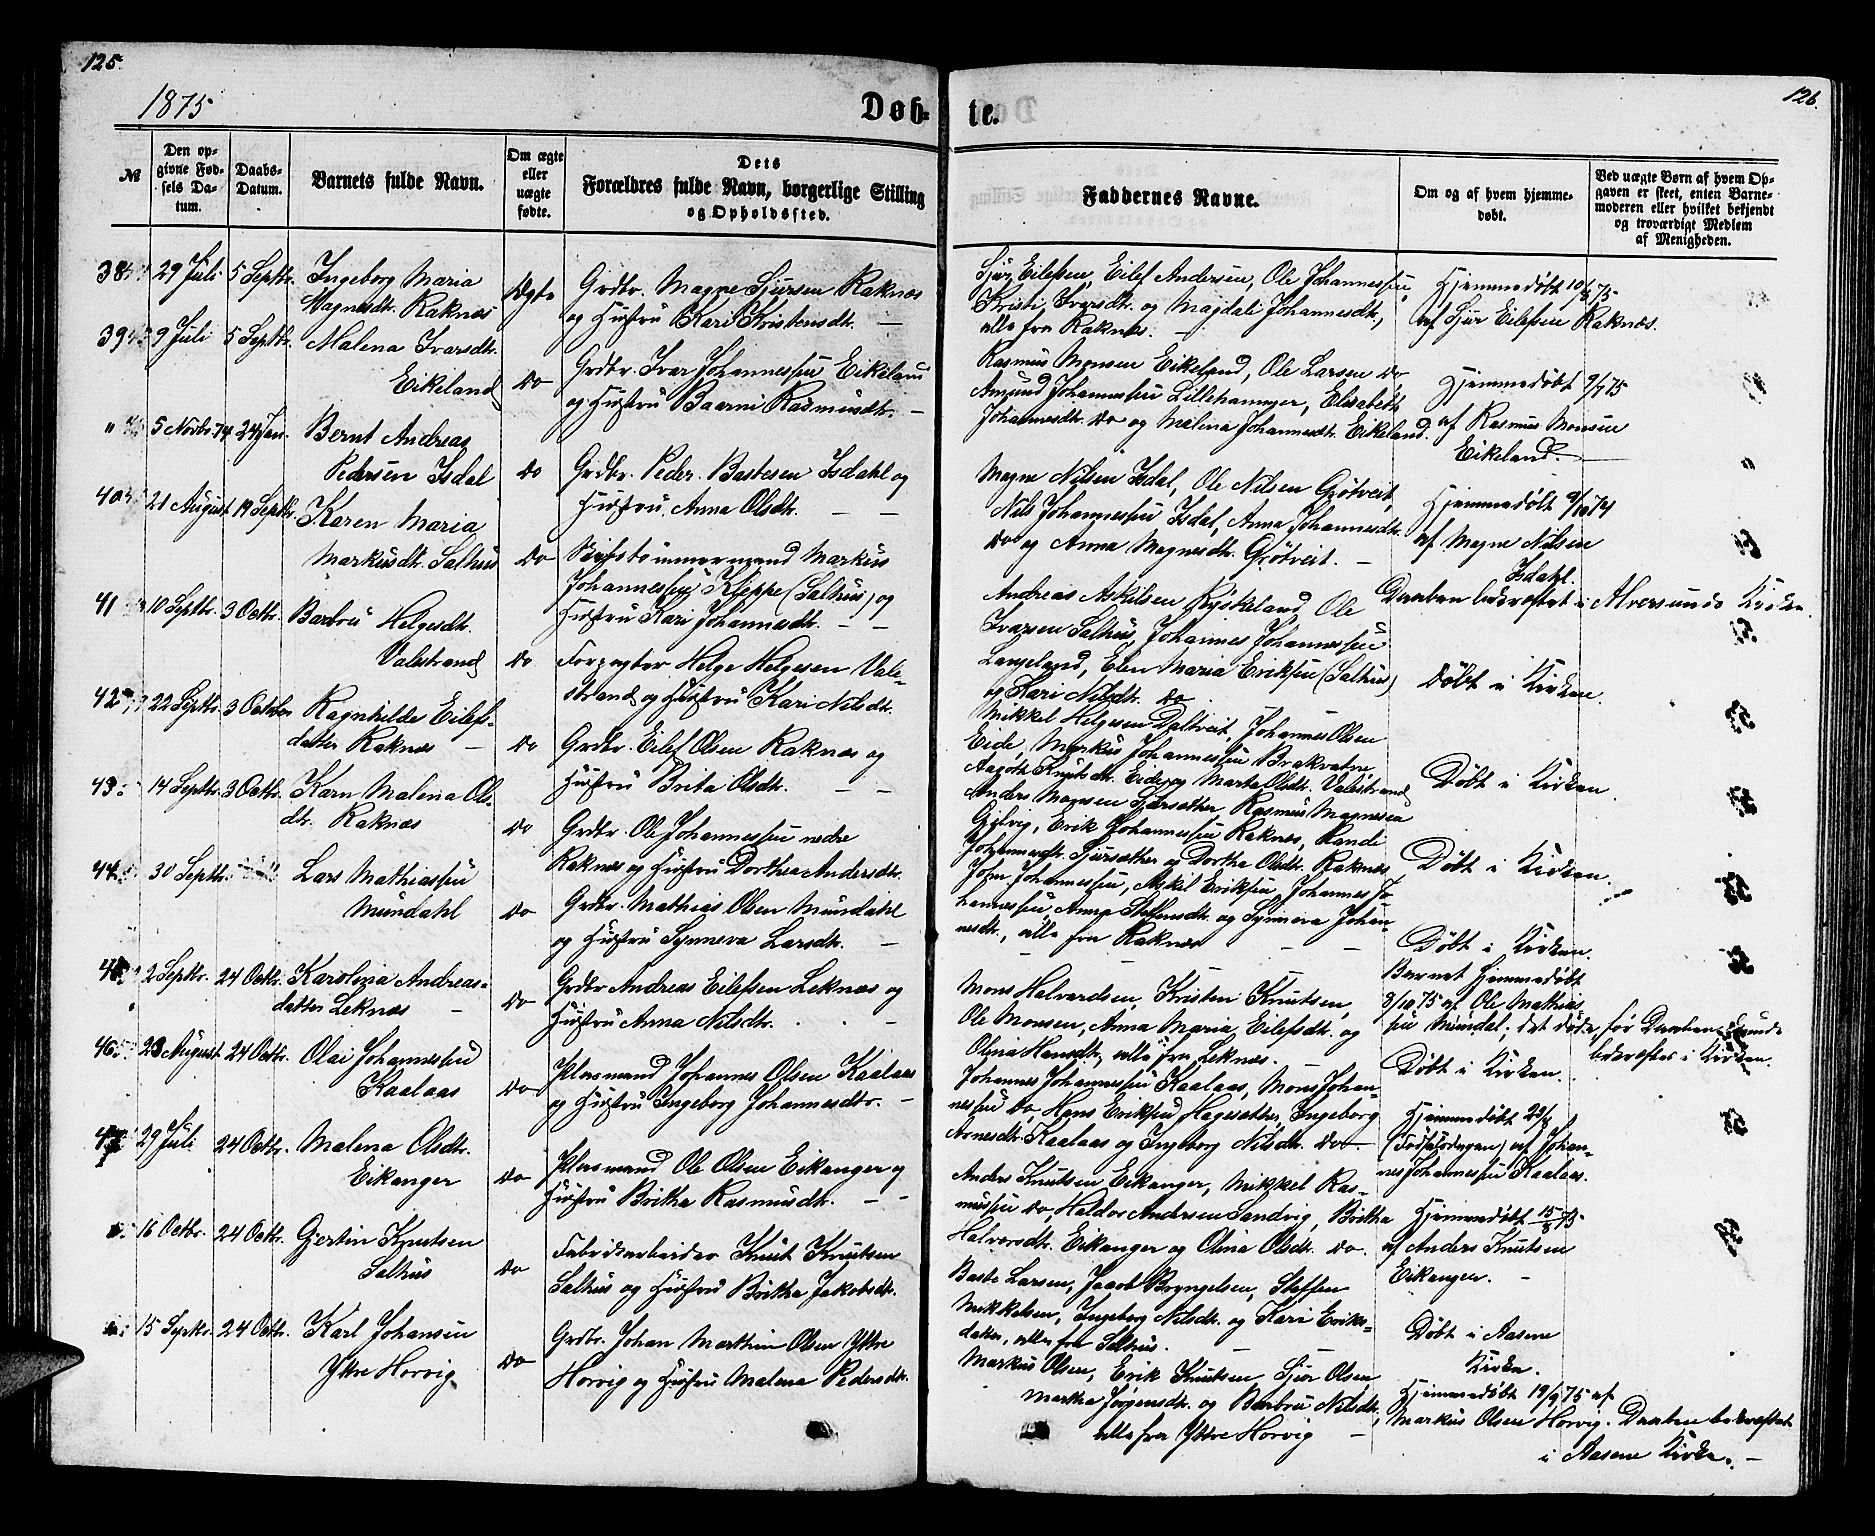 125.
126.
1875
Døb-
te.
№
Den op-
givne Fød-
sels Da-
tum.
Daabs-
Datum.
Barnets fulde Navn.
Om ægte
eller
uægte
fødte.
Dets
Forældres fulde Navn, borgerlige Stilling
og Opholdssted.
Faddernes Navne.
Om og af hvem hjemme-
døbt.
Ved uægte Børn af hvem Op-
gaven er skeet, enten Barne-
moderen eller hvilket bekjendt
og troværdigt Medlem
af Menigheden.
38 29 Juli 5 Septbr. Ingeborg Maria
Magnesdt. Raknæs
Ægte
Grdbr. Magne Sjursen Raknæs
og Hustru Kari Kristensdtr. —
Sjur Eilefsen, Eilef Andersen, Ole Johannessen,
Kristi Ivarsdtr. og Magdali Johannesdtr.,
alle fra Raknæs. —
Hjemmedøbt 10/8 75
af Sjur Eilefsen Raknæs.
39 9 Juli 5 Septbr. Malena Ivarsdtr.
Eikeland
Do
Grdbr. Ivar Johannessen Eikeland
og Hustru Baarni Rasmusdtr. —
Rasmus Monsen Eikeland, Ole Larsen do
Amund Johannessen Lillehammer, Elisabeth
Johannesdtr. do og Malena Johannesdtr. Eikeland.
Hjemmedøbt 9/7 75
af Rasmus Monsen
Eikeland. —
" 5 Novbr. 74 24 Jan. Bernt Andreas
Pedersen Isdal
Do
Grdbr. Peder Bastesen Isdahl og
Hustru Anna Olsdtr. — —
Magne Nilsen Isdal, Ole Nilsen Grøtveit,
Nils Johannessen Isdal, Anna Johannesdtr.
Do og Anna Magnesdtr. Grøtveit. —
Hjemmedøbt 9/11 74
af Magne Nilsen
Isdahl.
40 21 August 19 Septbr. Karen Maria
Markusdtr. Salhus
Do
Skibstømmermand Markus
Johannessen Kleppe (Salhus) og
Hustru Kari Johannesdtr. — —
Andreas Askilsen Ryskeland, Ole
Ivarsen Salhus, Johannes Johannessen
Langeland, Elen Maria Eriksen (Salhus)
og Kari Nilsdtr. do
Daaben bekræftet i Alversunds Kirken.
41 10 Septbr. 3 Octbr. Barbru Helgesdtr.
Valestrand
Do
Forpagter Helge Helgesen Vale-
strand og Hustru Kari Nilsdtr.
Mikkel Helgesen Daltveit, Johannes Olsen
Eide, Markus Johannessen Brakvatne
Aagotte Knutsdtr. Eide og Marta Olsdtr. Valestrand
Døbt i Kirken.
42 22 Septbr. 3 October Ragnhilde Eilefs-
datter Raknæs —
Do
Grdbr. Eilef Olsen Raknæs og
Hustru Brita Olsdtr. — —
Anders Monsen Sjursæther, Rasmus Magnesen
Gjelvig, Erik Johannessen Raknæs, Randi
Johannesdtr. Sjursæther og Dorthea Olsdtr. Raknæs
Døbt i Kirken.
43 14 Septbr. 3 Octbr. Karn Malena Ols-
dtr. Raknæs
Do
Grdbr. Ole Johannessen nedre
Raknæs og Hustru Dorthea Andersdtr.
John Johannessen, Askil Eriksen, Johannes Jo-
hannessen, Anna Steffensdtr. og Synneva Johan-
nesdtr., alle fra Raknæs — —
Døbt i Kirken.
44 30 Septbr. Lars Mathiassen
Mundahl
Do
Grdbr. Mathias Olsen Mundahl
og Hustru Synneva Larsdtr. —
Døbt i Kirken.
Barnet Hjemmedøbt
3/10 75 af Ole Mathias-
sen Mundal; det døde, før Daaben kunde
bekræftes i Kirken.
45 2 Septbr. 24 Octbr. Karolina Andreas-
datter Leknæs —
Do
Grdbr. Andreas Eilefsen Leknæs og
Hustru Anna Nilsdtr. — —
Mons Halvardsen, Kristen Knutsen,
Ole Monsen, Anna Maria Eilefsdtr. og
Olina Hansdtr., alle fra Leknæs.
Døbt i Kirken.
46 23 August 24 Octbr. Olai Johannessen
Kaalaas
Do
Pladsmand Johannes Olsen Kaalaas
og Hustru Ingeborg Johannesdtr. —
Johannes Johannessen Kaalaas, Mons Johan-
nessen do, Hans Eriksen Hagesæther, Ingeborg
Arnesdtr. Kaalaas og Ingeborg Nilsdtr. do —
Hjemmedøbt 23/8
(Fødselsdagen) af Johan-
nes Johannessen Kaalaas.
47 29 Juli 24 Octbr. Malena Olsdtr.
Eikanger
Do
Pladsmand Ole Olsen Eikanger og
Hustru Britha Rasmusdtr. — —
Anders Knutsen Eikanger, Mikkel Ras-
mussen do, Haldor Andersen Sandvig, Britha
Halvorsdtr. Eikanger og Olina Olsdtr. do.
Hjemmedøbt 15/8 75
af Anders Knutsen
Eikanger. —
16 Octbr. 24 Octbr. Gjertin Knutsen
Salhus
Do
Fabrikarbeider Knut Knutsen
Salhus og Hustru Britha Jakobsdtr.
Baste Larsen, Jacob Bryngelsen, Steffen
Mikkelsen, Ingeborg Nilsdtr. og Kari Eriks-
datter, alle fra Salhus. —
Døbt i Aasene
Kirke.
15 Septbr. 24 Octbr. Karl Johansen
Yttre Horvig
Do
Grdbr. Johan Marthin Olsen Yttre
Horvig og Hustru Malena Pedersdtr.
Markus Olsen, Erik Knutsen, Sjur Olsen
Martha Jørgensdtr. og Barbru Nilsdtr.,
alle fra Yttre Horvig —
Hjemmedøbt 19/9 75 af
Markus Olsen Horvig. Daaben bekræftet
i Aasene Kirke. —